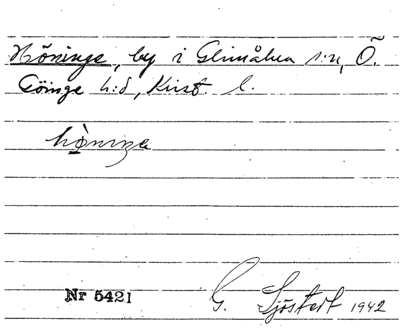 Höninge, by i Glimåkra s:n, Ö.
Göinge h:d, Krist. l.
hö̀niŋa
Nr 5421
G. Sjöstedt 1942